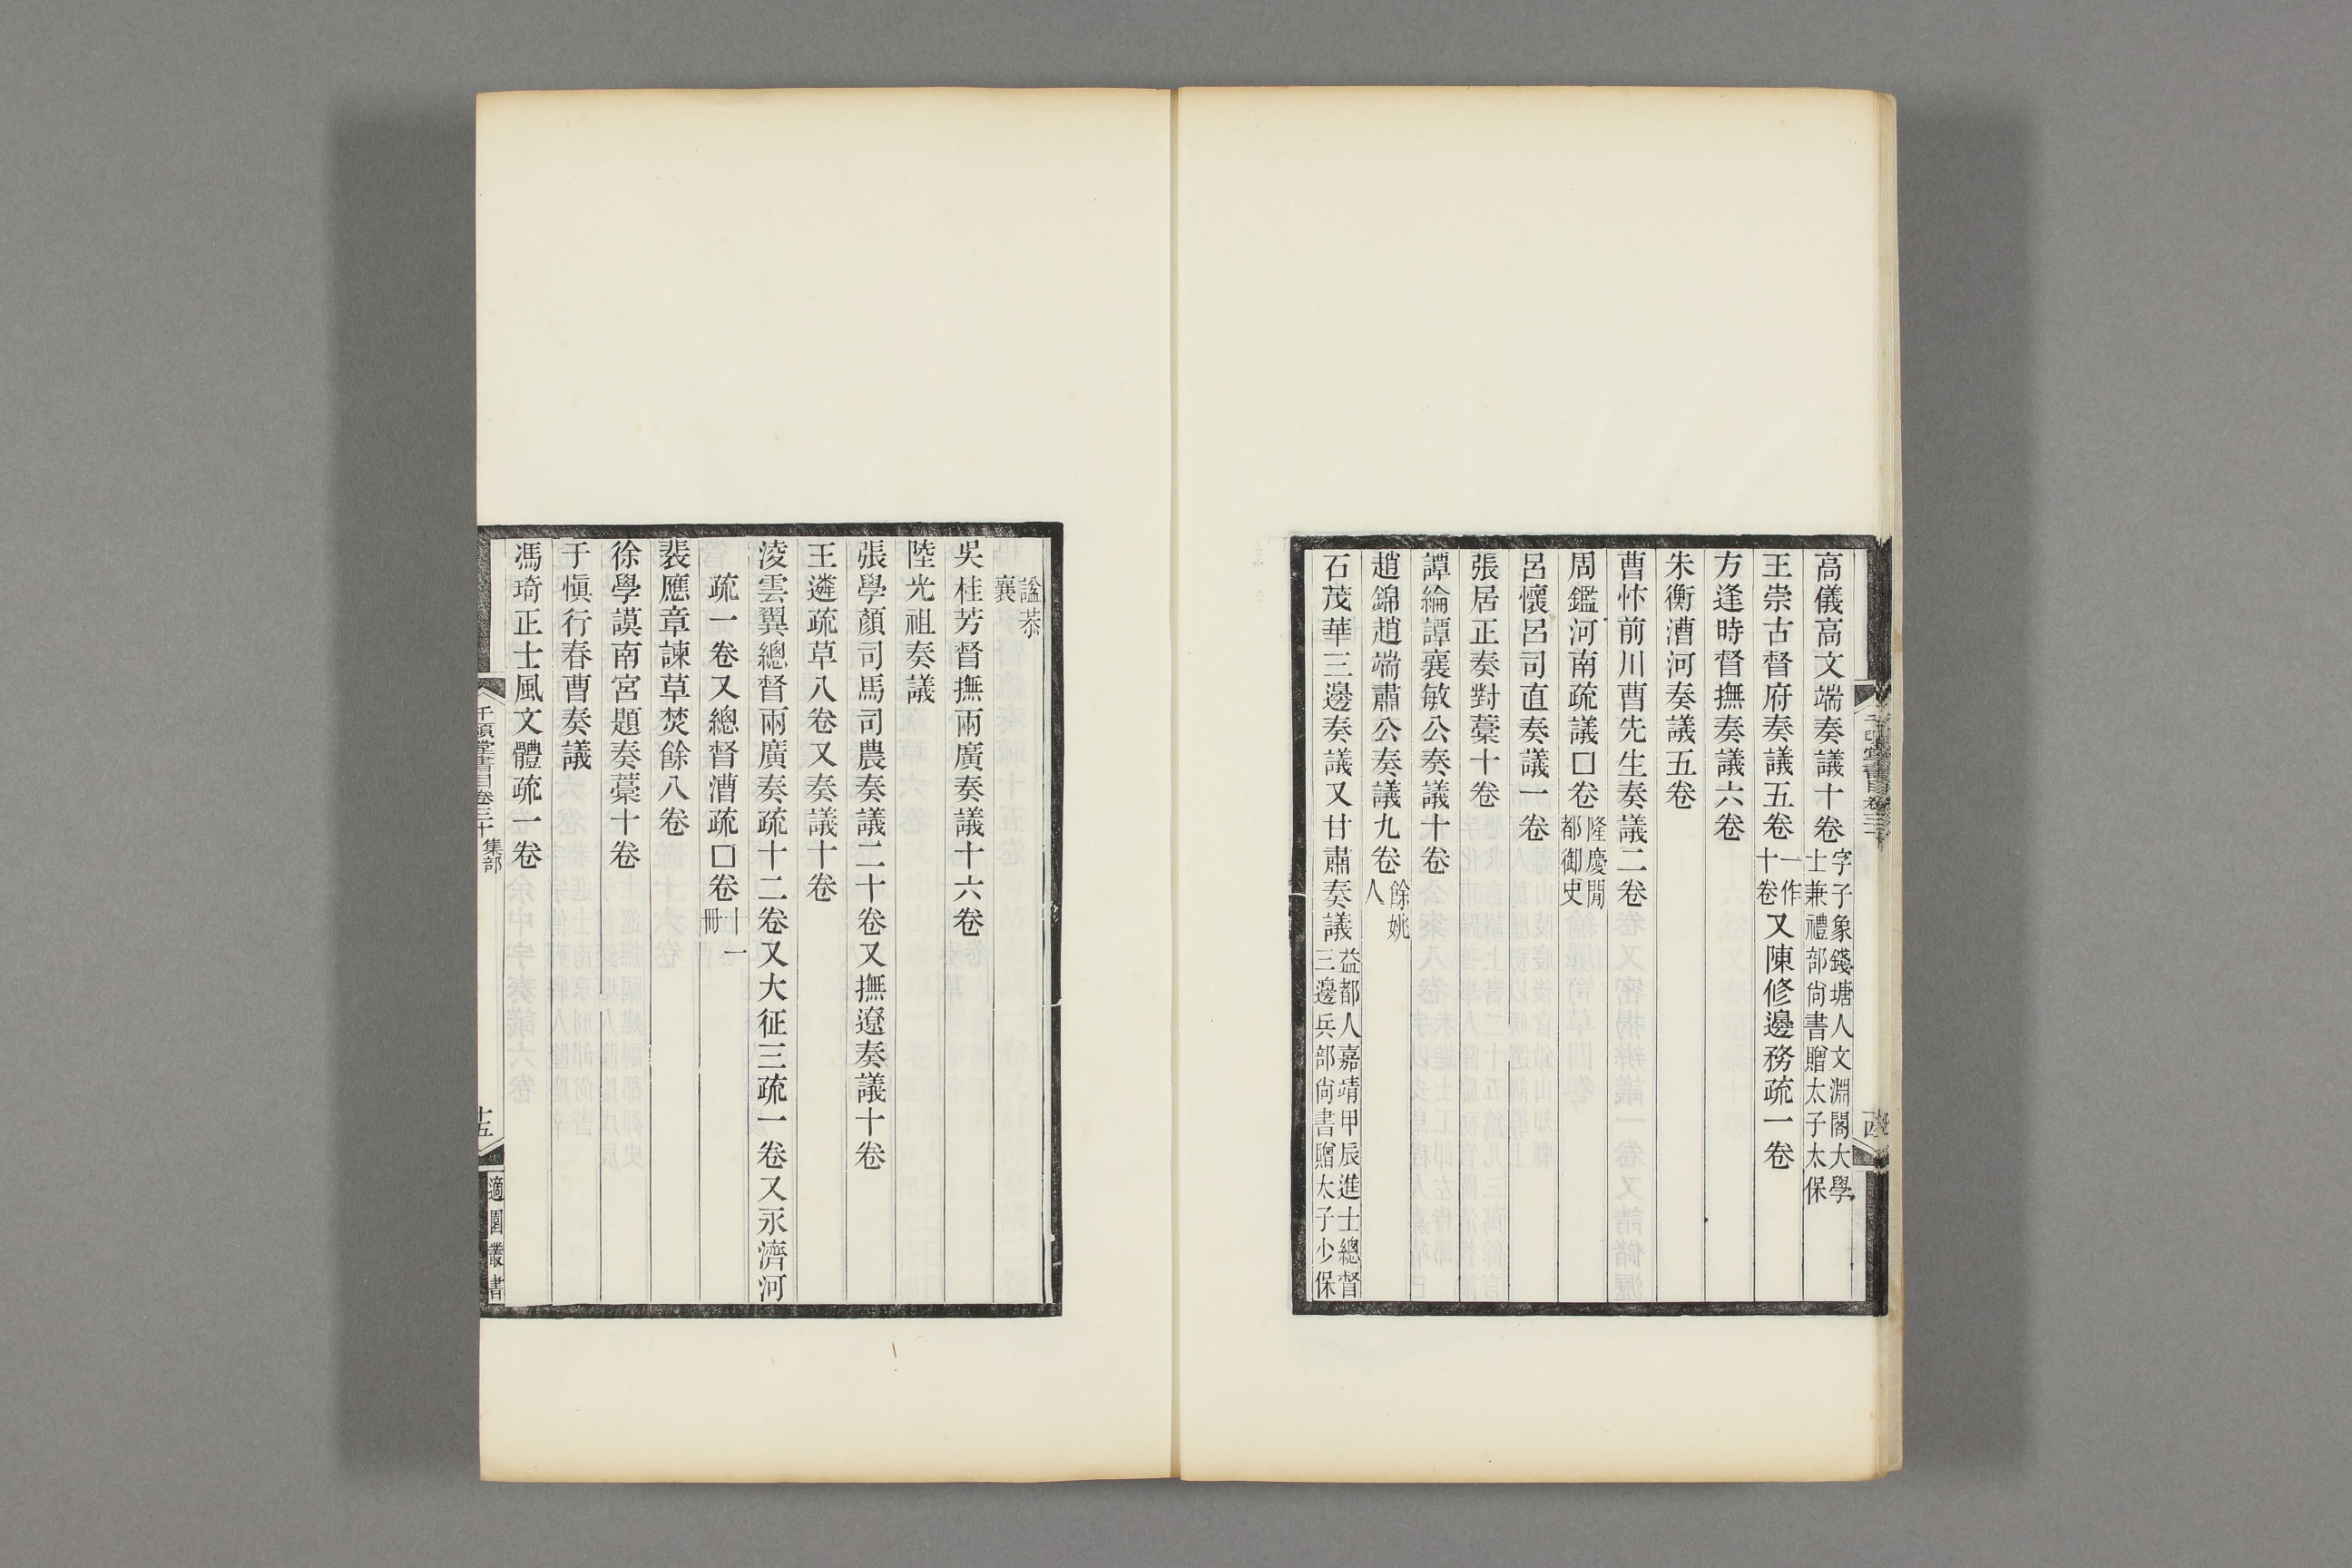 高儀高文端奏議十卷字子象錢塘人文淵閣大學士兼禮部尙書贈太子太保
王崇古督府奏議五卷一作十卷又陳修邊務疏一卷
方逢時督撫奏議六卷
朱衡漕河奏議五卷
曹忭前川曹先生奏議二卷
周鑑河南疏議囗卷隆慶閒都御史
呂懷呂司直奏議一卷
張居正奏對藁十卷
譚綸譚襄敏公奏議十卷
趙錦趙端肅公奏議九卷餘姚人
石茂華三邊奏議又甘肅奏議益都人嘉靖甲辰進士總督三邊兵部尙書贈太子少保
諡恭襄
吳桂芳督撫兩廣奏議十六卷
陸光祖奏議
張學顏司馬司農奏議二十卷又撫遼奏議十卷
王遴疏草八卷又奏議十卷
淩雲翼總督兩廣奏疏十二卷又大征三疏一卷又永濟河
疏一卷又總督漕疏囗卷十一冊
裴應章諫草焚餘八卷
徐學謨南宮題奏藁十卷
于愼行春曹奏議
馮琦正士風文體疏一卷
千頃堂書目卷三十 集部
十五
適園叢書